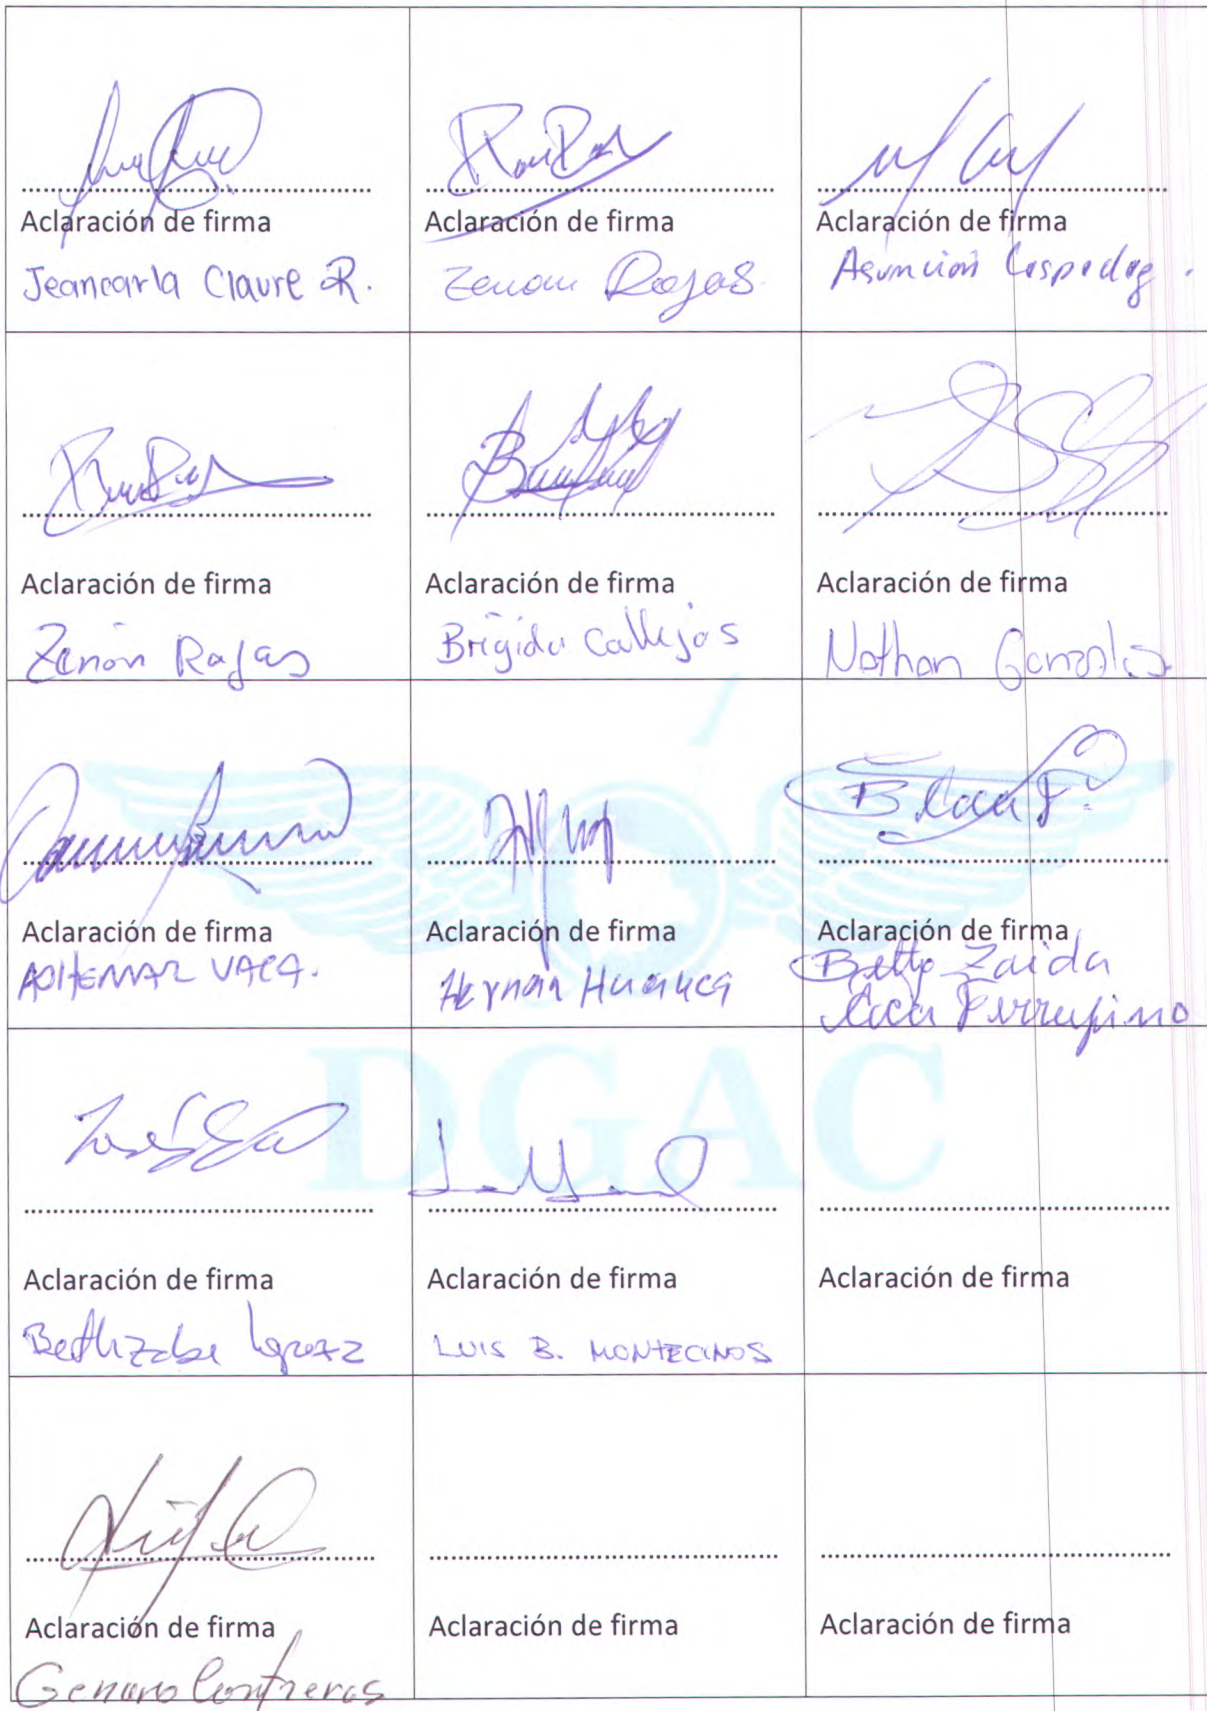 Aclaración de firma
Jeancarla Claure R.
Aclaración de firma
Zenon Rojas
Aclaración de firma
Asuncion Cespedes
Aclaración de firma
Zenón Rojas
Aclaración de firma
Brigida Callejas
Aclaración de firma
Nathan Gonzales
Aclaración de firma
ADHEMAR VACA.
Aclaración de firma
Hernán Huanca
B. Coca F.
Aclaración de firma
Betty Zaida
Coca Ferrufino
DGAC
Aclaración de firma
Bethzabe
Aclaración de firma
LUIS B. MONTECINOS
Aclaración de firma
Aclaración de firma
Genaro Contreras
Aclaración de firma
Aclaración de firma